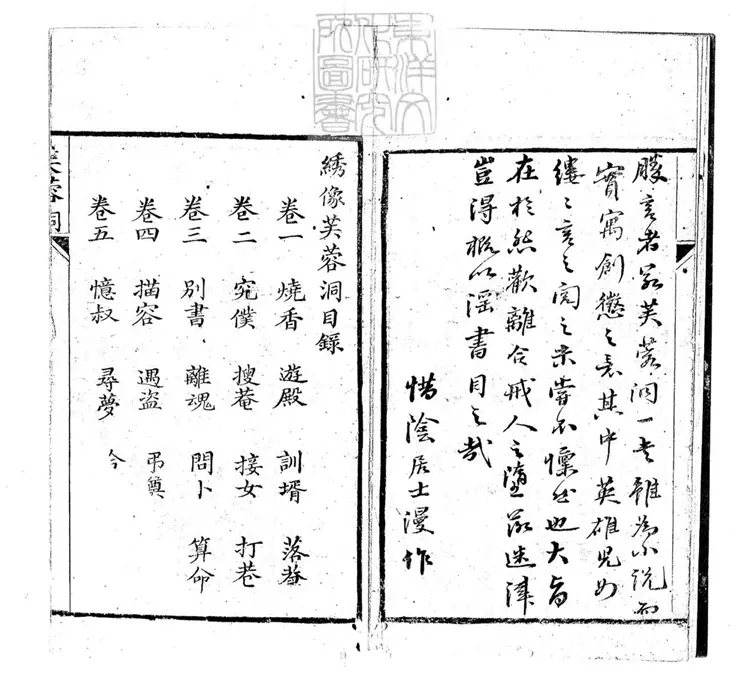 東洋文
化研究
所圖書
勝言者若芙蓉洞一書雖為小說而
實寓創懲之意其中英雄兒女
縷〻言之閱之未嘗不懍然也大旨
在於悲歡離合戒人之墮落迷津
豈得概以淫書目之哉
惜陰居士漫作
綉像芙蓉洞目錄
卷一 燒香 遊殿 訓壻 落菴
卷二 究僕 搜菴 接女 打巷
卷三 別書 離魂 問卜 算命
卷四 描容 遇盜 弔奠
卷五 憶叔 尋夢 今
芙蓉洞